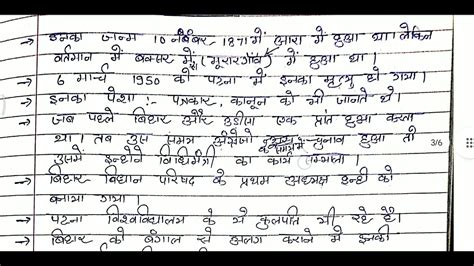 → इनका जन्म 10 नवंबर 1871 में आरा में हुआ था। लेकिन
वर्तमान में बक्सर में (मुरारगाँव) में हुआ था।
→ 6 मार्च 1950 को पटना में इनका मृत्यु हो गया।
→ इनका पेशा :- पत्रकार, कानून को भी जानते थे।
→ जब पहले बिहार और उड़ीसा एक प्रांत हुआ करता
था। तब उस समय अंग्रेजो के समय में चुनाव हुआ तो
उसमें इन्होंने विधिमंत्री का कार्य सम्भाला।
→ बिहार विधान परिषद के प्रथम अध्यक्ष इन्हीं को
बनाया गया।
→ पटना विश्वविद्यालय के ये कुलपति भी रहे हैं।
→ बिहार को बंगाल से अलग कराने में इनकी
3/6